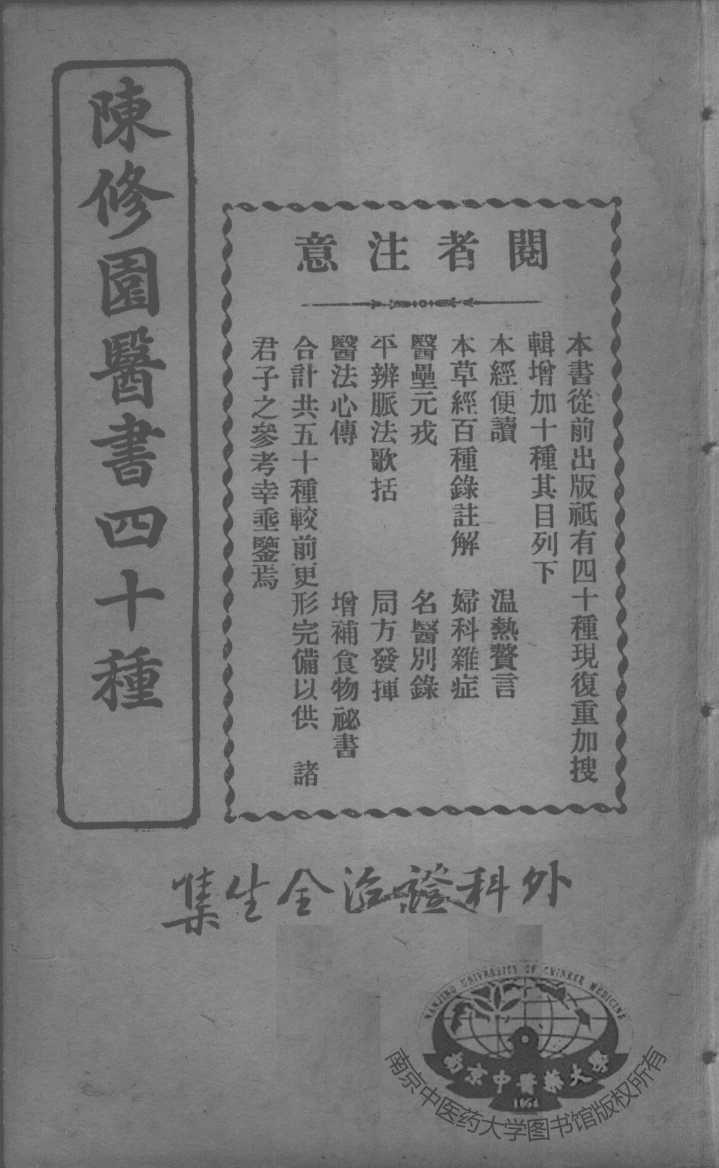 陳修園醫書四十種
閱者注意
本書從前出版祇有四十種現復重加搜
輯增加十種其目列下
本經便讀　温熱贅言
本草經百種錄註解　婦科雜症
醫壘元戎　名醫別錄
平辨脈法歌括　局方發揮
醫法心傳　增補食物祕書
合計共五十種較前更形完備以供　諸
君子之參考幸垂鑒焉
外科證治全生集
NANJING UNIVERSITY OF CHINESE MEDICINE
南京中醫藥大學
1954
南京中医药大学图书馆版权所有